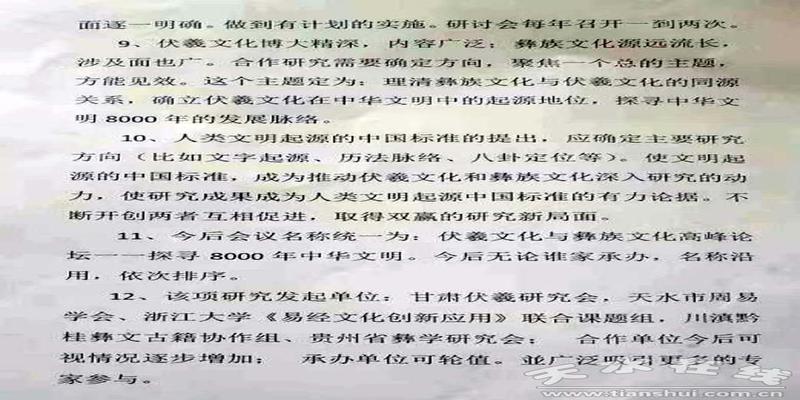 面逐一明确。做到有计划的实施。研讨会每年召开一到两次。
9、伏羲文化博大精深，内容广泛；彝族文化源远流长，
涉及面也广。合作研究需要确定方向，聚焦一个总的主题，
方能见效。这个主题定为：理清彝族文化与伏羲文化的同源
关系，确立伏羲文化在中华文明中的起源地位，探寻中华文
明8000年的发展脉络。
10、人类文明起源的中国标准的提出，应确定主要研究
方向（比如文字起源、历法脉络、八卦定位等）。使文明起
源的中国标准，成为推动伏羲文化和彝族文化深入研究的动
力，使研究成果成为人类文明起源中国标准的有力论据。不
断开创两者互相促进，取得双赢的研究新局面。
11、今后会议名称统一为：伏羲文化与彝族文化高峰论
坛——探寻8000年中华文明。今后无论谁家承办，名称沿
用，依次排序。
12、该项研究发起单位：甘肃伏羲研究会，天水市周易
学会、浙江大学《易经文化创新应用》联合课题组，川滇黔
桂彝文古籍协作组、贵州省彝学研究会； 合作单位今后可
视情况逐步增加； 承办单位可轮值。並广泛吸引更多的专
家参与。
天水在线
www.tianshui.com.cn